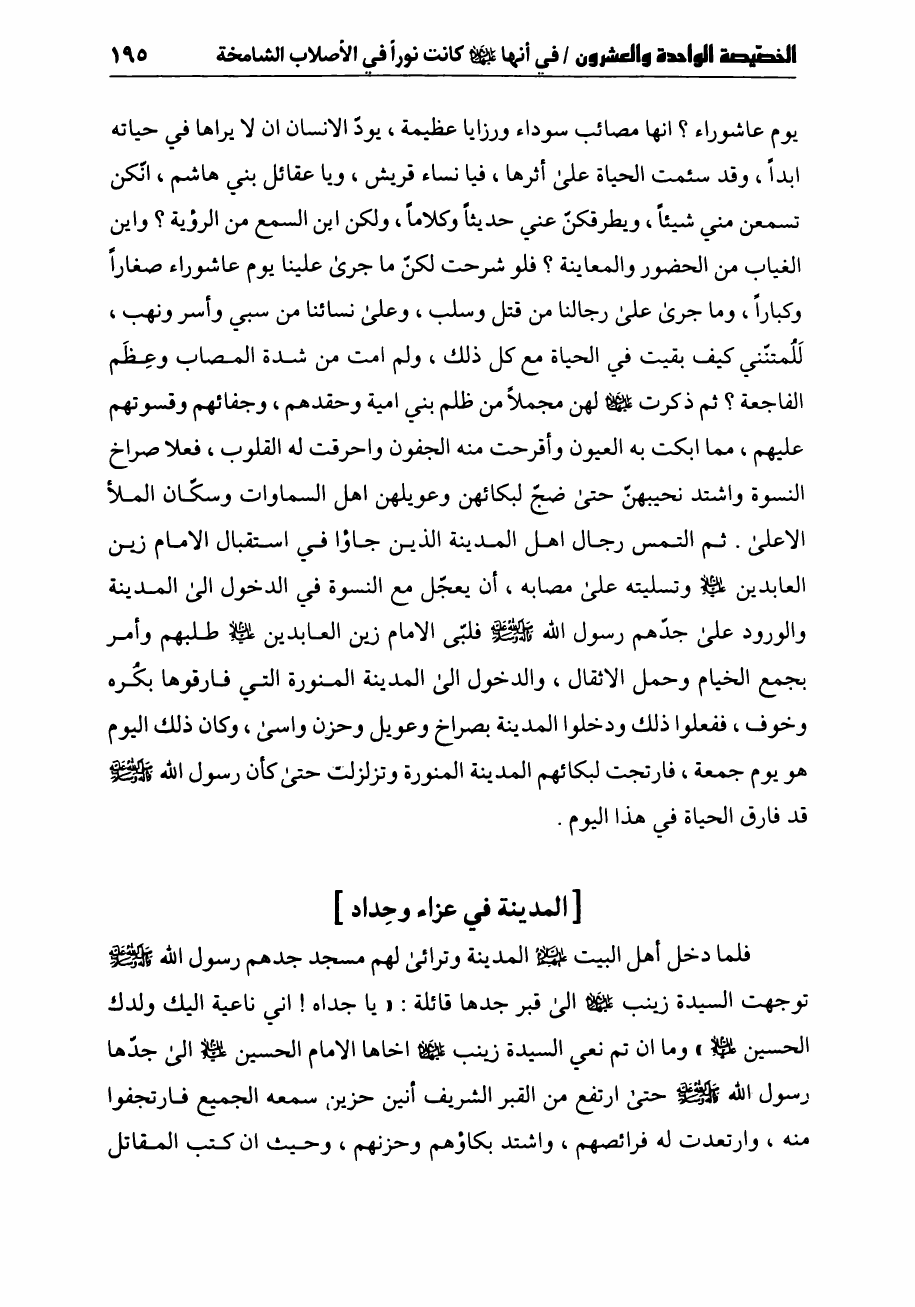 الخصّيصة الواحدة والعشرون / في أنها عليها السلام كانت نوراً في الأصلاب الشامخة ١٩٥
يوم عاشوراء ؟ انها مصائب سوداء ورزايا عظيمة ، يودّ الانسان ان لا يراها في حياته
ابداً ، وقد سئمت الحياة علىٰ أثرها ، فيا نساء قريش ، ويا عقائل بني هاشم ، انّكن
تسمعن مني شيئاً ، ويطرقكنّ عني حديثاً وكلاماً ، ولكن اين السمع من الرؤية ؟ واين
الغياب من الحضور والمعاينة ؟ فلو شرحت لكنّ ما جرىٰ علينا يوم عاشوراء صغاراً
وكباراً ، وما جرىٰ علىٰ رجالنا من قتل وسلب ، وعلىٰ نسائنا من سبي وأسر ونهب ،
لَلُمتنّني كيف بقيت في الحياة مع كل ذلك ، ولم امت من شدة المصاب وعِظَم
الفاجعة ؟ ثم ذكرت عليها السلام لهن مجملاً من ظلم بني امية وحقدهم ، وجفائهم وقسوتهم
عليهم ، مما ابكت به العيون وأقرحت منه الجفون واحرقت له القلوب ، فعلا صراخ
النسوة واشتد نحيبهنّ حتىٰ ضجّ لبكائهن وعويلهن اهل السماوات وسكّان الملأ
الاعلىٰ . ثم التمس رجال اهل المدينة الذين جاؤا في استقبال الامام زين
العابدين عليه السلام وتسليته علىٰ مصابه ، أن يعجّل مع النسوة في الدخول الىٰ المدينة
والورود علىٰ جدّهم رسول الله صلى الله عليه وآله وسلم فلبّى الامام زين العابدين عليه السلام طلبهم وأمر
بجمع الخيام وحمل الاثقال ، والدخول الىٰ المدينة المنورة التي فارقوها بكُره
وخوف ، ففعلوا ذلك ودخلوا المدينة بصراخ وعويل وحزن واسىٰ ، وكان ذلك اليوم
هو يوم جمعة ، فارتجت لبكائهم المدينة المنورة وتزلزلت حتىٰ كأن رسول الله صلى الله عليه وآله وسلم
قد فارق الحياة في هذا اليوم .
[ المدينة في عزاء وحِداد ]
فلما دخل أهل البيت عليهم السلام المدينة وترائىٰ لهم مسجد جدهم رسول الله صلى الله عليه وآله وسلم
توجهت السيدة زينب عليها السلام الىٰ قبر جدها قائلة : « يا جداه ! اني ناعية اليك ولدك
الحسين عليه السلام » وما ان تم نعي السيدة زينب عليها السلام اخاها الامام الحسين عليه السلام الىٰ جدّها
رسول الله صلى الله عليه وآله وسلم حتىٰ ارتفع من القبر الشريف أنين حزين سمعه الجميع فارتجفوا
منه ، وارتعدت له فرائصهم ، واشتد بكاؤهم وحزنهم ، وحيث ان كتب المقاتل